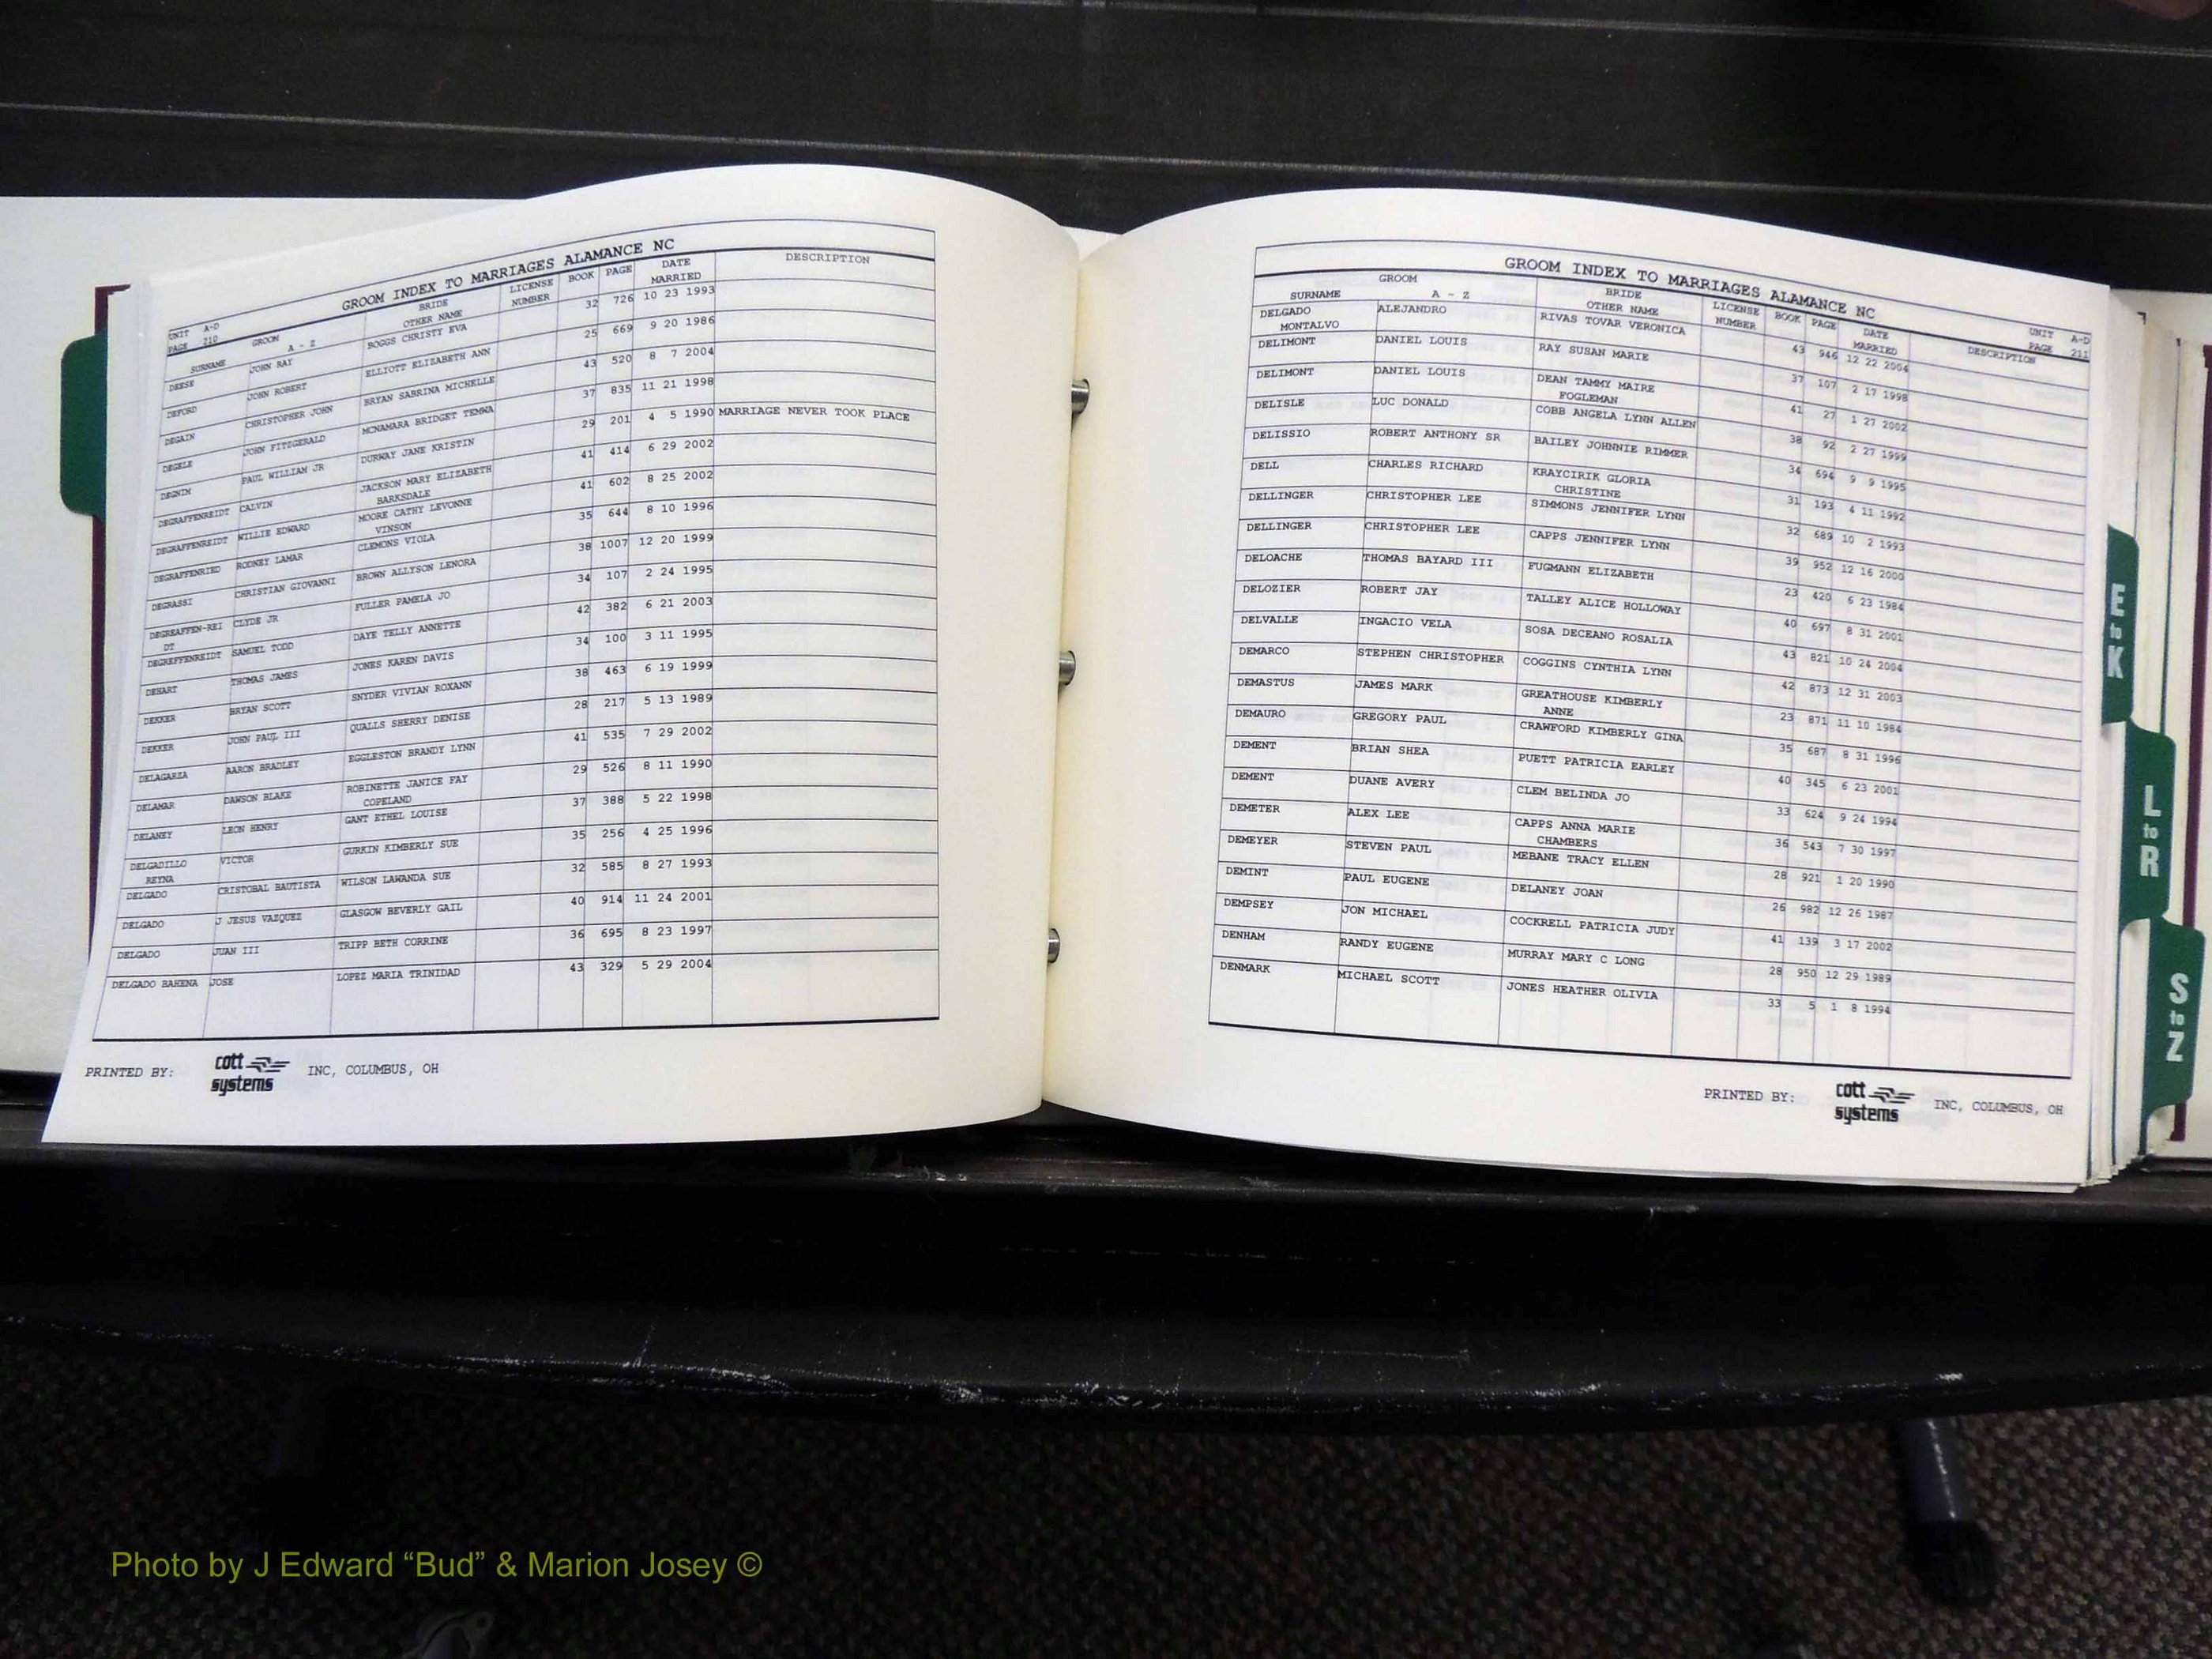 GROOM INDEX TO MARRIAGES ALAMANCE NC
UNIT A-D
PAGE 210
GROOM BRIDE LICENSE BOOK PAGE DATE DESCRIPTION
SURNAME A - Z OTHER NAME NUMBER MARRIED
DEESE JOHN RAY BOGGS CHRISTY EVA 32 726 10 23 1993
DEFORD JOHN ROBERT ELLIOTT ELIZABETH ANN 25 669 9 20 1986
DEGAIN CHRISTOPHER JOHN BRYAN SABRINA MICHELLE 43 520 8 7 2004
DEGELE JOHN FITZGERALD MCNAMARA BRIDGET TEMWA 37 835 11 21 1998
DEGNIM PAUL WILLIAM JR DURWAY JANE KRISTIN 29 201 4 5 1990 MARRIAGE NEVER TOOK PLACE
DEGRAFFENREIDT CALVIN JACKSON MARY ELIZABETH 41 414 6 29 2002
BARKSDALE
DEGRAFFENREIDT WILLIE EDWARD MOORE CATHY LEVONNE 41 602 8 25 2002
VINSON
DEGRAFFENRIED RODNEY LAMAR CLEMONS VIOLA 35 644 8 10 1996
DEGRASSI CHRISTIAN GIOVANNI BROWN ALLYSON LENORA 38 1007 12 20 1999
DEGREAFFEN-REI CLYDE JR FULLER PAMELA JO 34 107 2 24 1995
DT
DEGREFFENREIDT SAMUEL TODD DAYE TELLY ANNETTE 42 382 6 21 2003
DEHART THOMAS JAMES JONES KAREN DAVIS 34 100 3 11 1995
DEKKER BRYAN SCOTT SNYDER VIVIAN ROXANN 38 463 6 19 1999
DEKKER JOHN PAUL III QUALLS SHERRY DENISE 28 217 5 13 1989
DELAGARZA AARON BRADLEY EGGLESTON BRANDY LYNN 41 535 7 29 2002
DELAMAR DAWSON BLAKE ROBINETTE JANICE FAY 29 526 8 11 1990
COPELAND
DELANEY LEON HENRY GANT ETHEL LOUISE 37 388 5 22 1998
DELGADILLO VICTOR GURKIN KIMBERLY SUE 35 256 4 25 1996
REYNA
DELGADO CRISTOBAL BAUTISTA WILSON LAWANDA SUE 32 585 8 27 1993
DELGADO J JESUS VAZQUEZ GLASGOW BEVERLY GAIL 40 914 11 24 2001
DELGADO JUAN III TRIPP BETH CORRINE 36 695 8 23 1997
DELGADO BAHENA JOSE LOPEZ MARIA TRINIDAD 43 329 5 29 2004
PRINTED BY: cott systems INC, COLUMBUS, OH
GROOM INDEX TO MARRIAGES ALAMANCE NC
UNIT A-D
PAGE 211
GROOM BRIDE LICENSE BOOK PAGE DATE DESCRIPTION
SURNAME A - Z OTHER NAME NUMBER MARRIED
DELGADO ALEJANDRO RIVAS TOVAR VERONICA 43 946 12 22 2004
MONTALVO
DELIMONT DANIEL LOUIS RAY SUSAN MARIE 37 107 2 17 1998
DELIMONT DANIEL LOUIS DEAN TAMMY MAIRE 41 27 1 27 2002
FOGLEMAN
DELISLE LUC DONALD COBB ANGELA LYNN ALLEN 38 92 2 27 1999
DELISSIO ROBERT ANTHONY SR BAILEY JOHNNIE RIMMER 34 694 9 9 1995
DELL CHARLES RICHARD KRAYCIRIK GLORIA 31 193 4 11 1992
CHRISTINE
DELLINGER CHRISTOPHER LEE SIMMONS JENNIFER LYNN 32 689 10 2 1993
DELLINGER CHRISTOPHER LEE CAPPS JENNIFER LYNN 39 952 12 16 2000
DELOACHE THOMAS BAYARD III FUGMANN ELIZABETH 23 420 6 23 1984
DELOZIER ROBERT JAY TALLEY ALICE HOLLOWAY 40 697 8 31 2001
DELVALLE INGACIO VELA SOSA DECEANO ROSALIA 43 821 10 24 2004
DEMARCO STEPHEN CHRISTOPHER COGGINS CYNTHIA LYNN 42 873 12 31 2003
DEMASTUS JAMES MARK GREATHOUSE KIMBERLY 23 871 11 10 1984
ANNE
DEMAURO GREGORY PAUL CRAWFORD KIMBERLY GINA 35 687 8 31 1996
DEMENT BRIAN SHEA PUETT PATRICIA EARLEY 40 345 6 23 2001
DEMENT DUANE AVERY CLEM BELINDA JO 33 624 9 24 1994
DEMETER ALEX LEE CAPPS ANNA MARIE 36 543 7 30 1997
CHAMBERS
DEMEYER STEVEN PAUL MEBANE TRACY ELLEN 28 921 1 20 1990
DEMINT PAUL EUGENE DELANEY JOAN 26 982 12 26 1987
DEMPSEY JON MICHAEL COCKRELL PATRICIA JUDY 41 139 3 17 2002
DENHAM RANDY EUGENE MURRAY MARY C LONG 28 950 12 29 1989
DENMARK MICHAEL SCOTT JONES HEATHER OLIVIA 33 5 1 8 1994
PRINTED BY: cott systems INC, COLUMBUS, OH
E to K
L to R
S to Z
Photo by J Edward “Bud” & Marion Josey ©